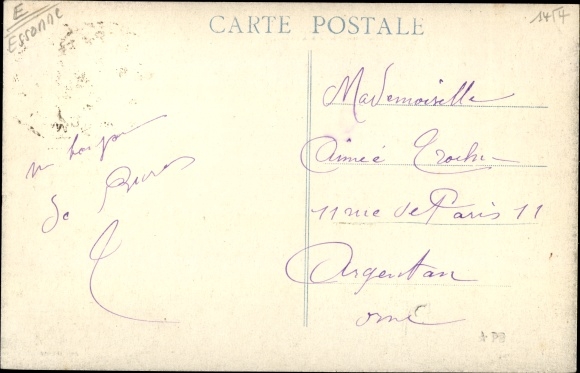 E
ESSONNE
CARTE POSTALE
1454
un bonjour
de
Mademoiselle
Aimée
11 rue de Paris 11
Argentan
orne